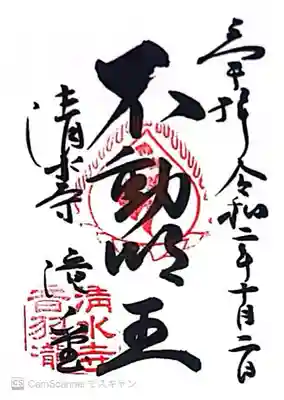 奉拝 令和二年十月二日
不動明王
清水寺 滝ノ堂
清水寺
音羽瀧
CS CamScanner でスキャン